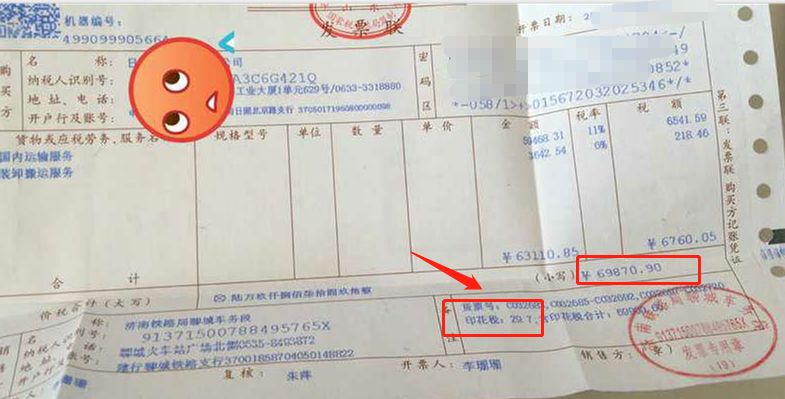 机器编号:
499099905664
山东
发票联
开票日期:
购买方
名称:
公司
纳税人识别号:
A3C6G421Q
地址、电话:
工业大厦1单元629号/0633-3318880
开户行及账号:
日照北京路支行 37050171960800000098
密码区
0852*
*-058/1>
015672032025346*/*
货物或应税劳务、服务名
规格型号 单位 数量 单价 金额 税率 税额
国内运输服务
59468.31 11% 6541.59
装卸搬运服务
3642.54 6% 218.46
¥63110.85 ¥6760.05
合计
价税合计(大写)
陆万玖仟捌佰柒拾圆玖角整
(小写) ¥69870.90
名称:
济南铁路局聊城车务段
91371500788495765X
聊城火车站广场北侧0535-8493872
建行聊城铁路支行37001858704050148822
备注
货票号:
印花税: 29.7,
印花税合计:
复核: 朱萍
开票人: 李珊珊
销售方:(章)
第三联:发票联 购买方记账凭证
发票专用章
(19)